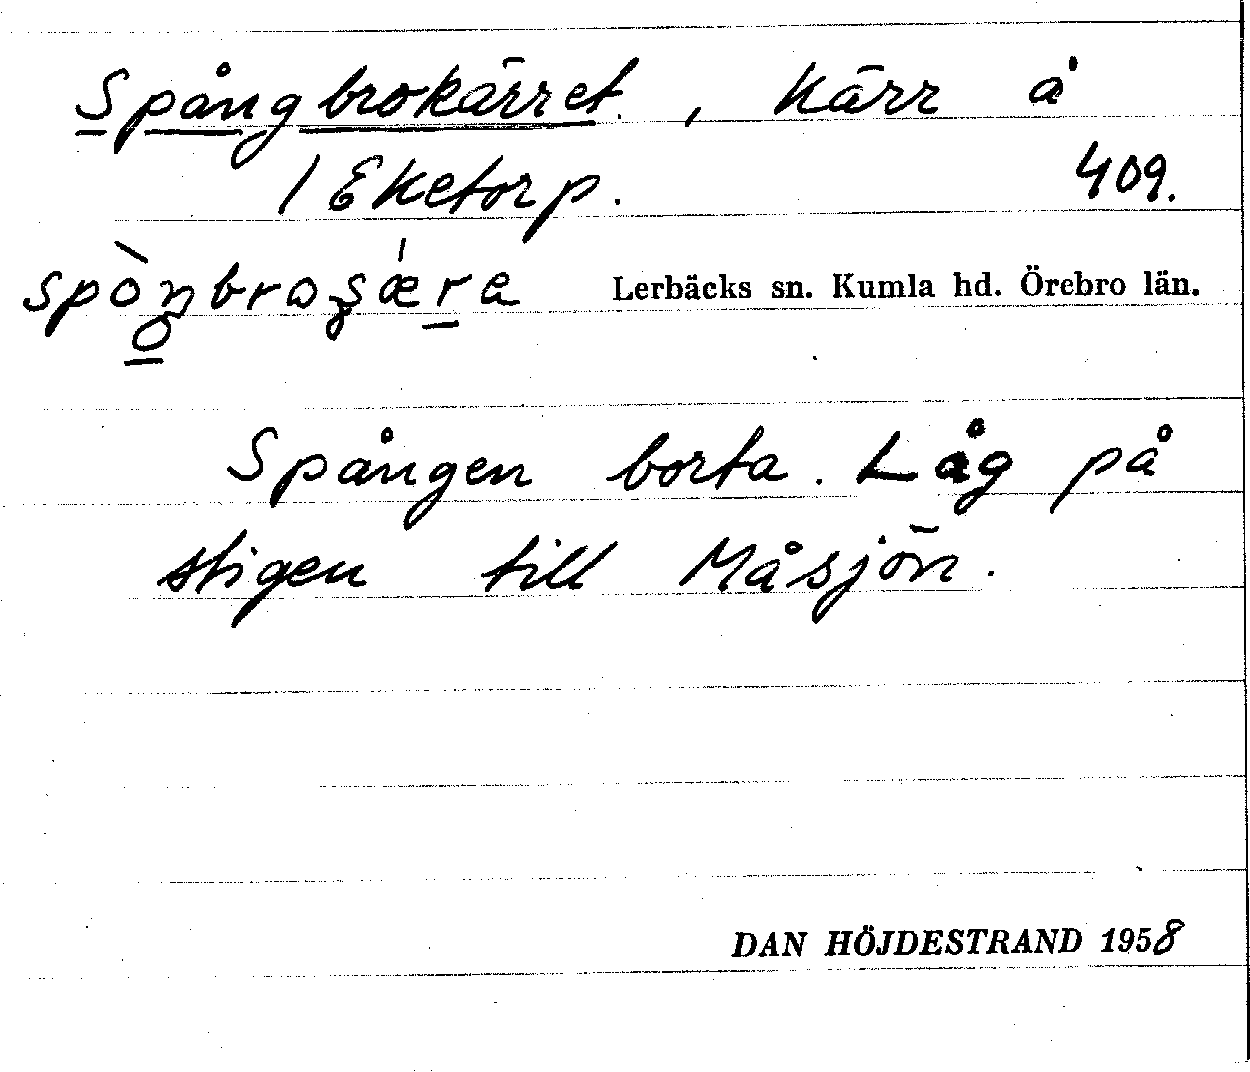 Spångbrokärret, Kärr å
1 Eketorp. 409.
Lerbäcks sn. Kumla hd. Örebro län.
Spången borta. Låg på
stigen till Måsjön.
DAN HÖJDESTRAND 1958